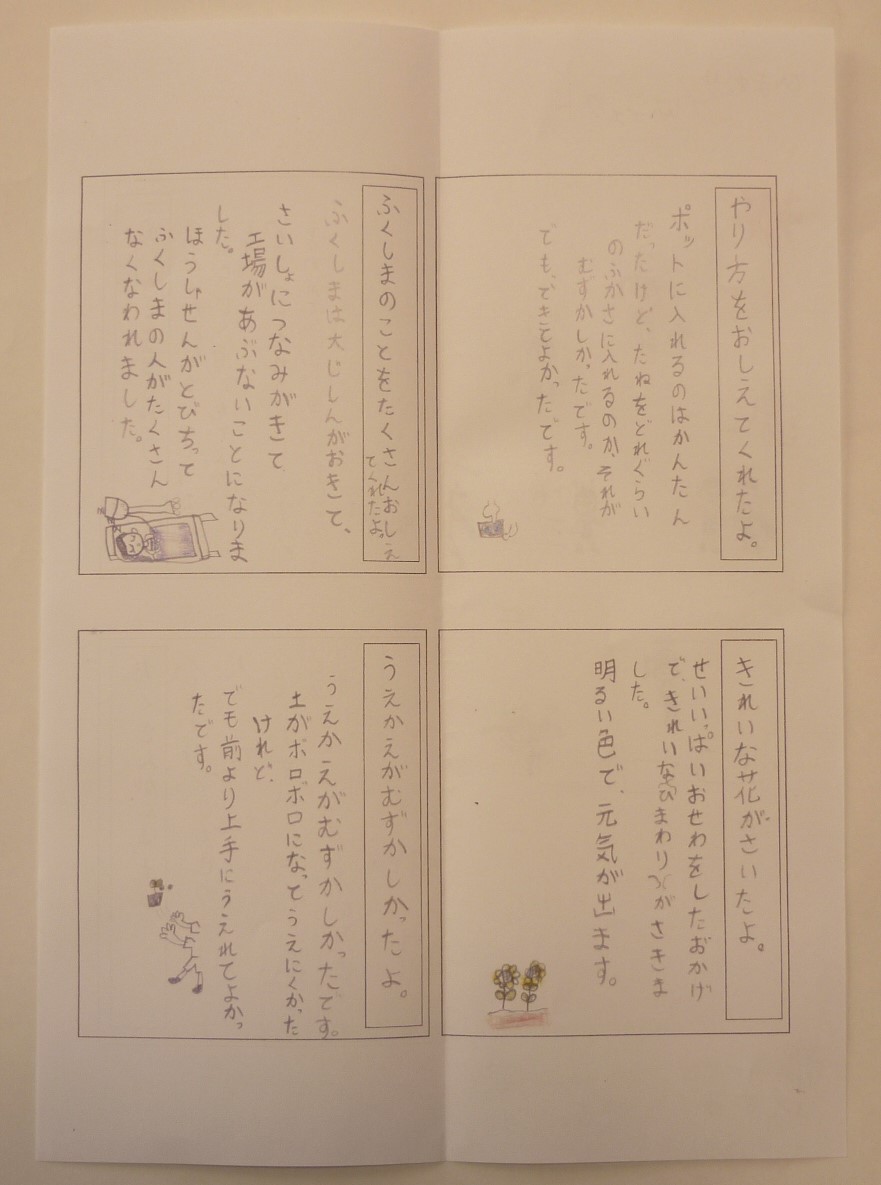 やり方をおしえてくれたよ。
ポットに入れるのはかんたん
だったけど、たねをどれぐらい
のふかさに入れるのか、それが
むずかしかったです。
でも、できてよかったです。
ふくしまのことをたくさんおしえ
てくれたよ。
ふくしまは大じしんがおきて、
さいしょにつなみがきて
工場があぶないことになりま
した。
ほうしゃせんがとびちって
ふくしまの人がたくさん
なくなわれました。
きれいな花がさいたよ。
せいいっぱいおせわをしたおかげ
で、きれいなひまわりがさきま
した。
明るい色で、元気が出ます。
うえかえがむずかしかったよ。
うえかえがむずかしかったです。
土がボロボロになってうえにくかった
けれど、
でも前より上手にうえれてよかっ
たです。